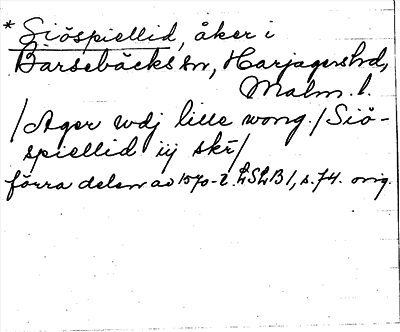 * Siöspiellid, åker i
Barsebäcks sn, Harjagers hd,
Malm. l.
/Ager vdj lille wong./Siö-
spiellid iij skr/
förra delen av 1570-t. LSLB 1, s. 74. orig.